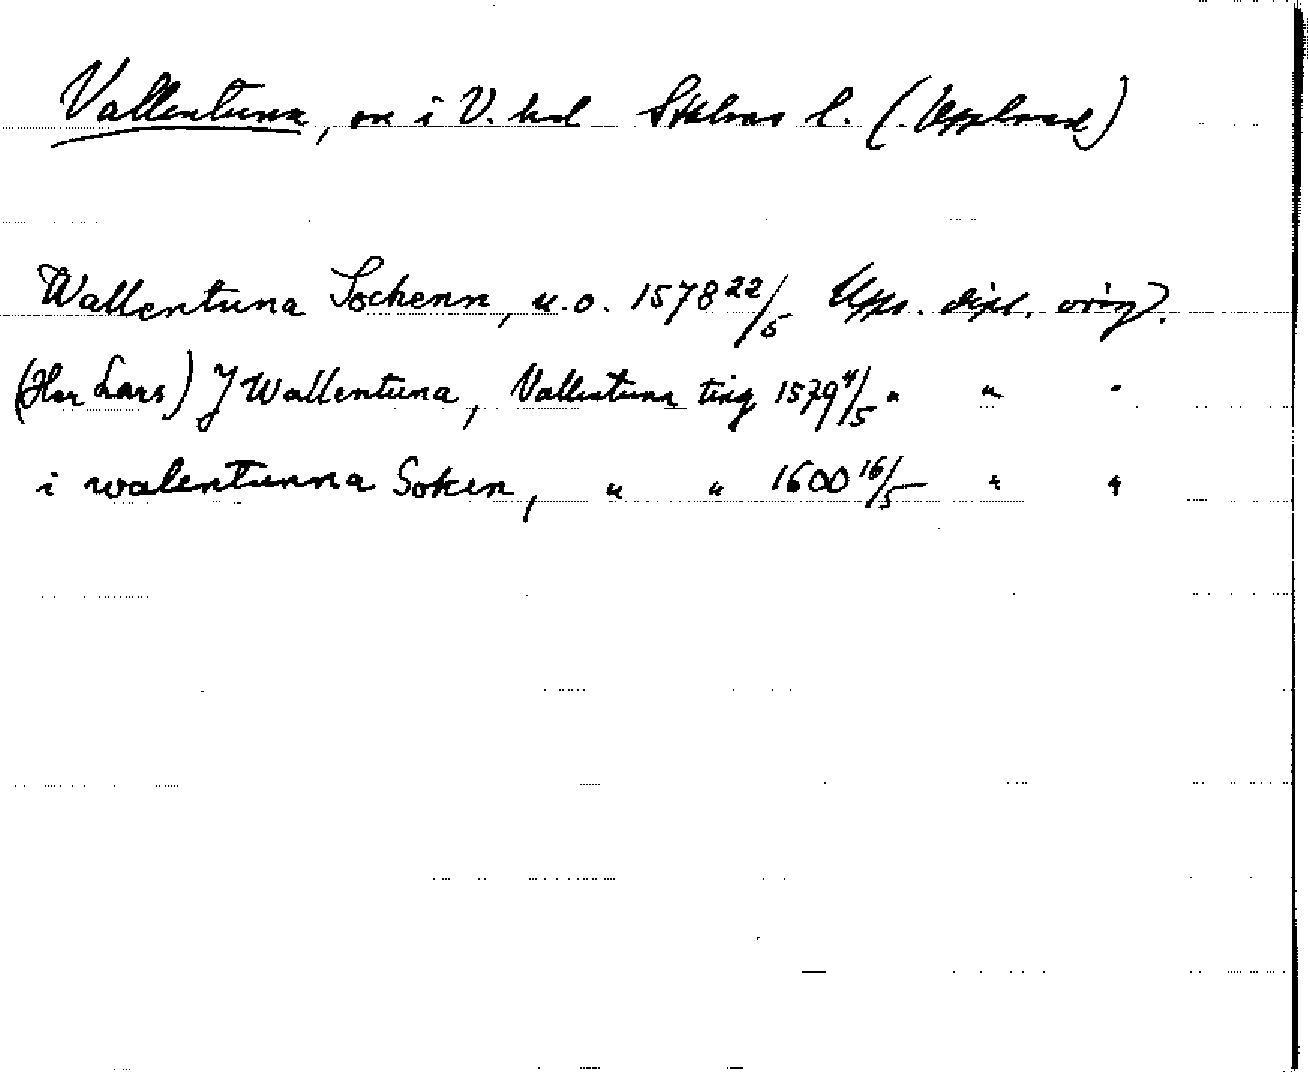 Vallentuna, sn i V. hd Sthlms l. (Uppland)
Wallentuna Sochenn, u.o. 1578 22/5 Upps. dipl. orig.
(Her Lars) J Wallentuna, Vallentuna ting 1579 4/5 " " "
i walentunna Soken, " " 1600 16/5 " "